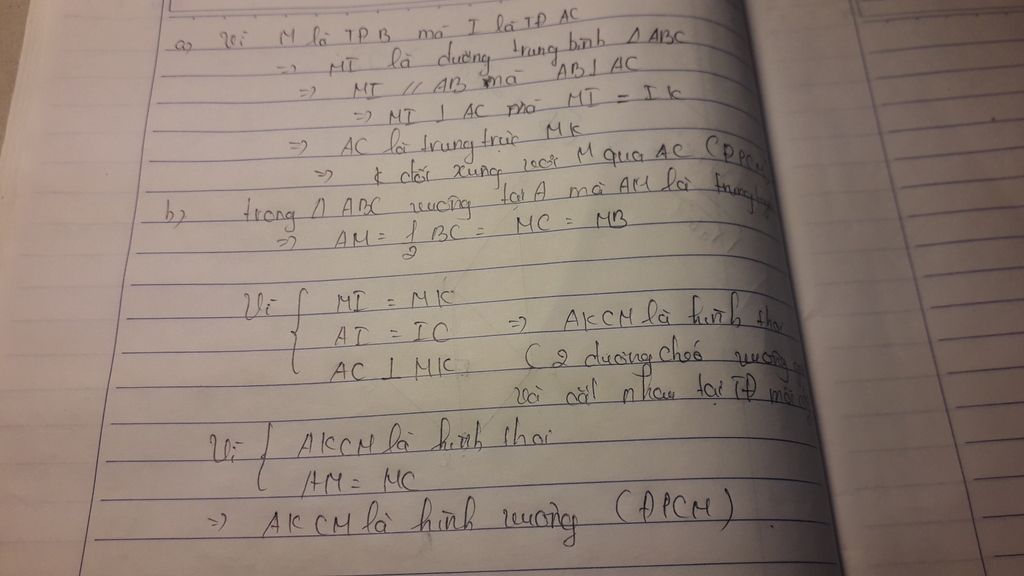 a) Vì M là TĐ B mà I là TĐ AC
=> MI là đường trung bình Δ ABC
=> MI // AB mà AB ⊥ AC
=> MI ⊥ AC mà MI = IK
=> AC là trung trực MK
=> K đối xứng với M qua AC (ĐPCM
b) trong Δ ABC vuông tại A mà AM là trung
=> AM = 1/2 BC = MC = MB
Vì { MI = MK
AI = IC => AKCM là hình thoi
AC ⊥ MK ( 2 đường chéo vuông
và cắt nhau tại TĐ mỗi
Vì { AKCM là hình thoi
AM = MC
=> AKCM là hình vuông (ĐPCM)